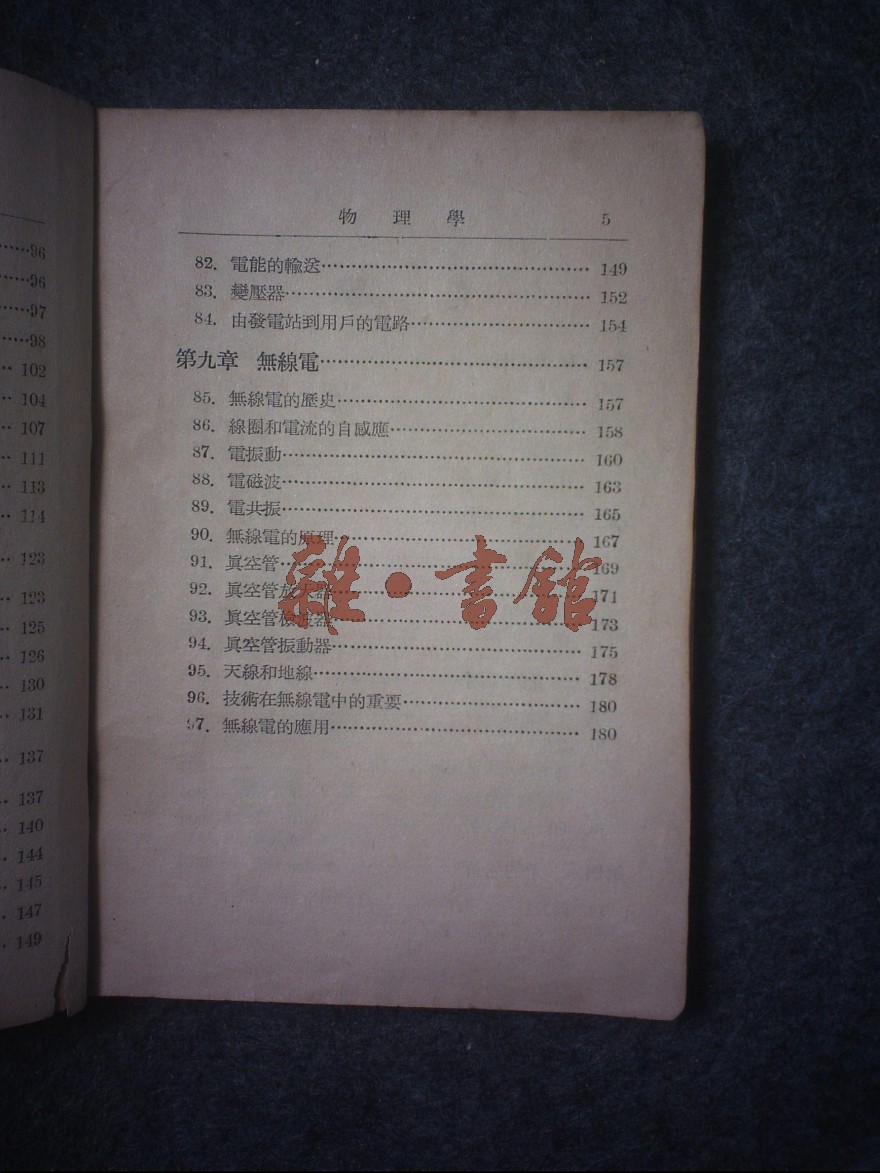 ……96
……96
……97
……98
‥ 102
‥ 104
‥ 107
‥ 111
‥ 113
‥ 114
‥ 123
‥ 123
‥ 125
‥ 126
‥ 130
‥ 131
‥ 137
‥ 137
‥ 140
‥ 144
‥ 145
‥ 147
‥ 149
物 理 學 5
82. 電能的輸送……………………………… 149
83. 變壓器…………………………………… 152
84. 由發電站到用戶的電路………………… 154
第九章 無線電……………………………… 157
85. 無線電的歷史…………………………… 157
86. 線圈和電流的自感應…………………… 158
87. 電振動…………………………………… 160
88. 電磁波…………………………………… 163
89. 電共振…………………………………… 165
90. 無線電的原理…………………………… 167
91. 眞空管…………………………………… 169
92. 眞空管放大器…………………………… 171
93. 眞空管檢波器…………………………… 173
94. 眞空管振動器…………………………… 175
95. 天線和地線……………………………… 178
96. 技術在無線電中的重要………………… 180
97. 無線電的應用…………………………… 180
雜·書館